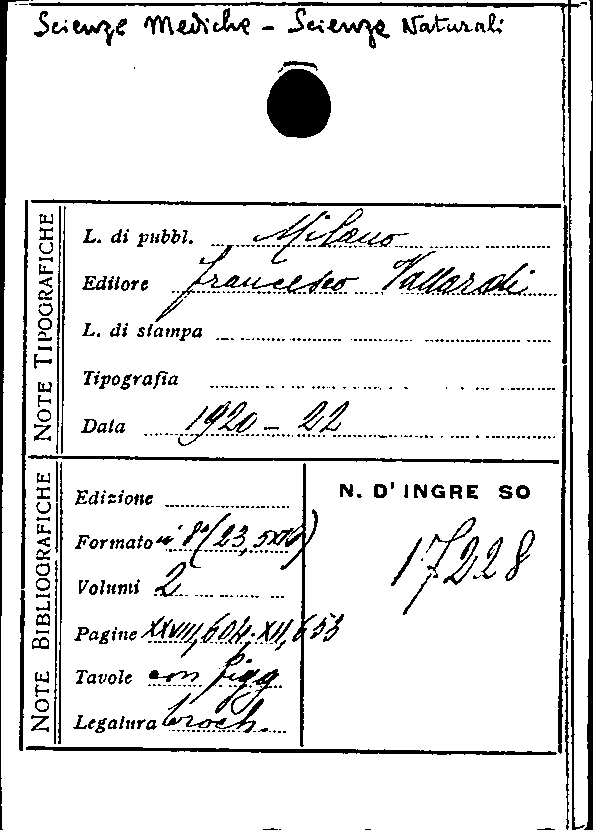 Scienze Mediche - Scienze Naturali
NOTE TIPOGRAFICHE
L. di pubbl. Milano
Editore Francesco Vallardi
L. di stampa
Tipografia
Data 1920 - 22
NOTE BIBLIOGRAFICHE
Edizione
Formato in 8° (23,5x16)
Volumi 2
Pagine XXVIII, 604; XII, 653
Tavole con figg
Legatura broch.
N. D' INGRE SO
17228